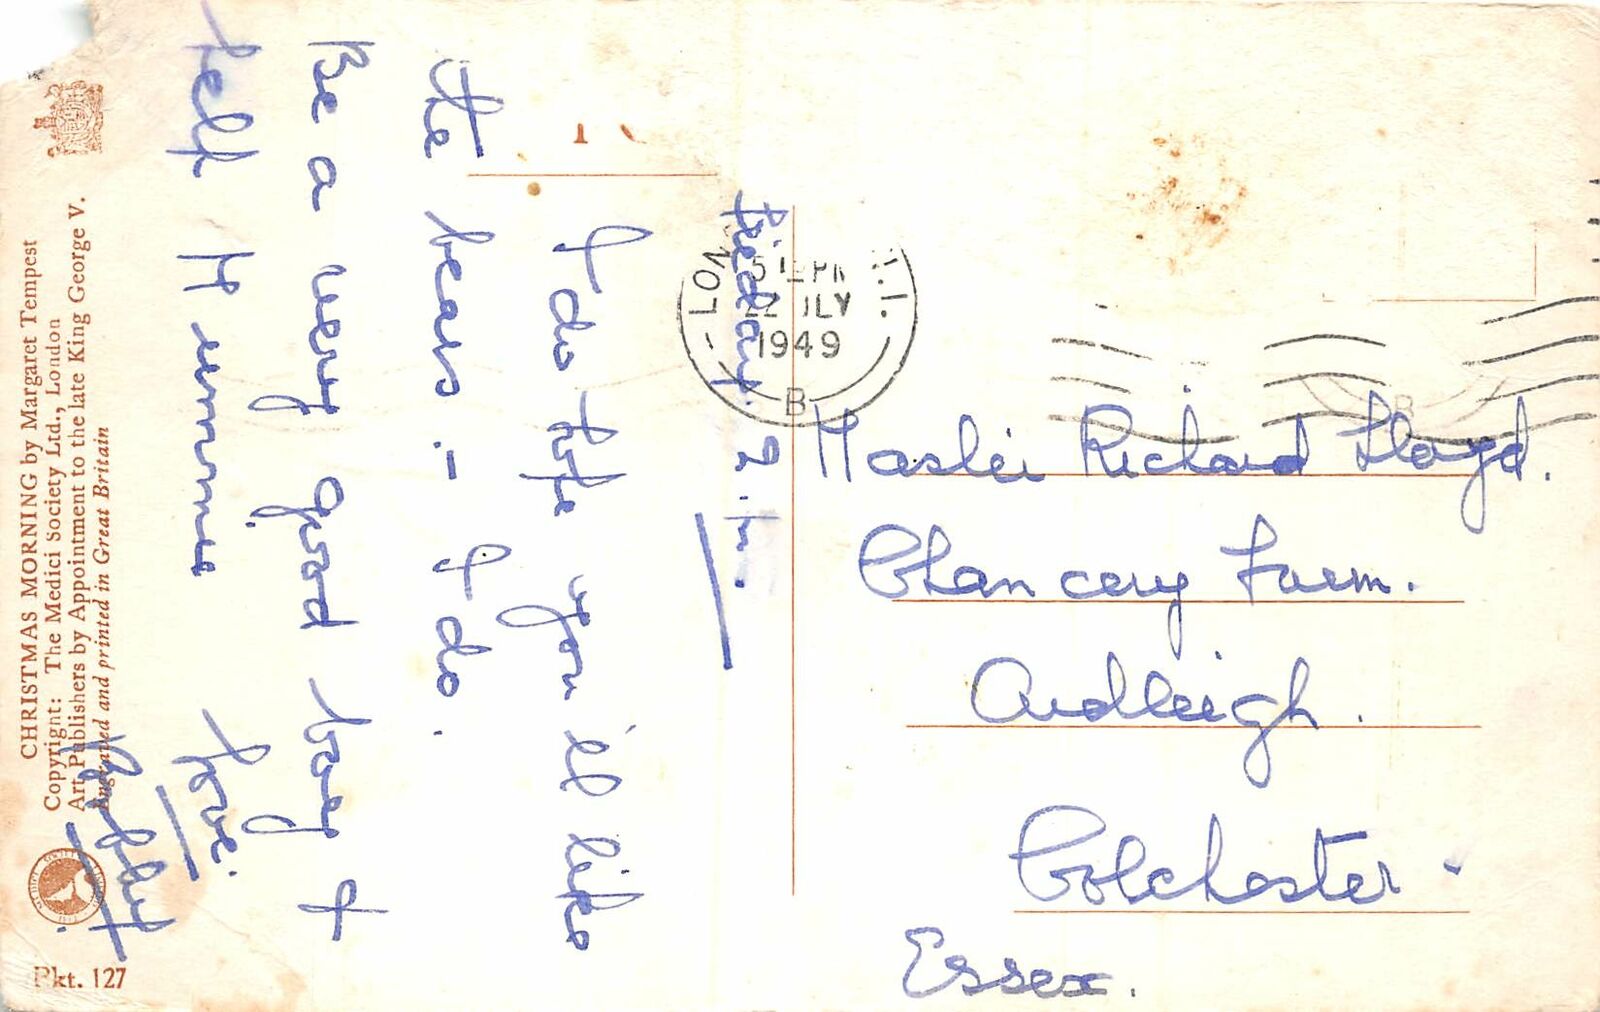 CHRISTMAS MORNING by Margaret Tempest
Copyright: The Medici Society Ltd., London
Art Publishers by Appointment to the late King George V.
Engraved and printed in Great Britain
Pkt. 127
Friday. 2.
I do hope you'll like
the bears - I do.
Be a very good boy &
help Mummie
Love.
LON
22 JLY
1949
B
Master Richard Lloyd.
Chancery Farm.
Ardleigh.
Colchester
Essex.